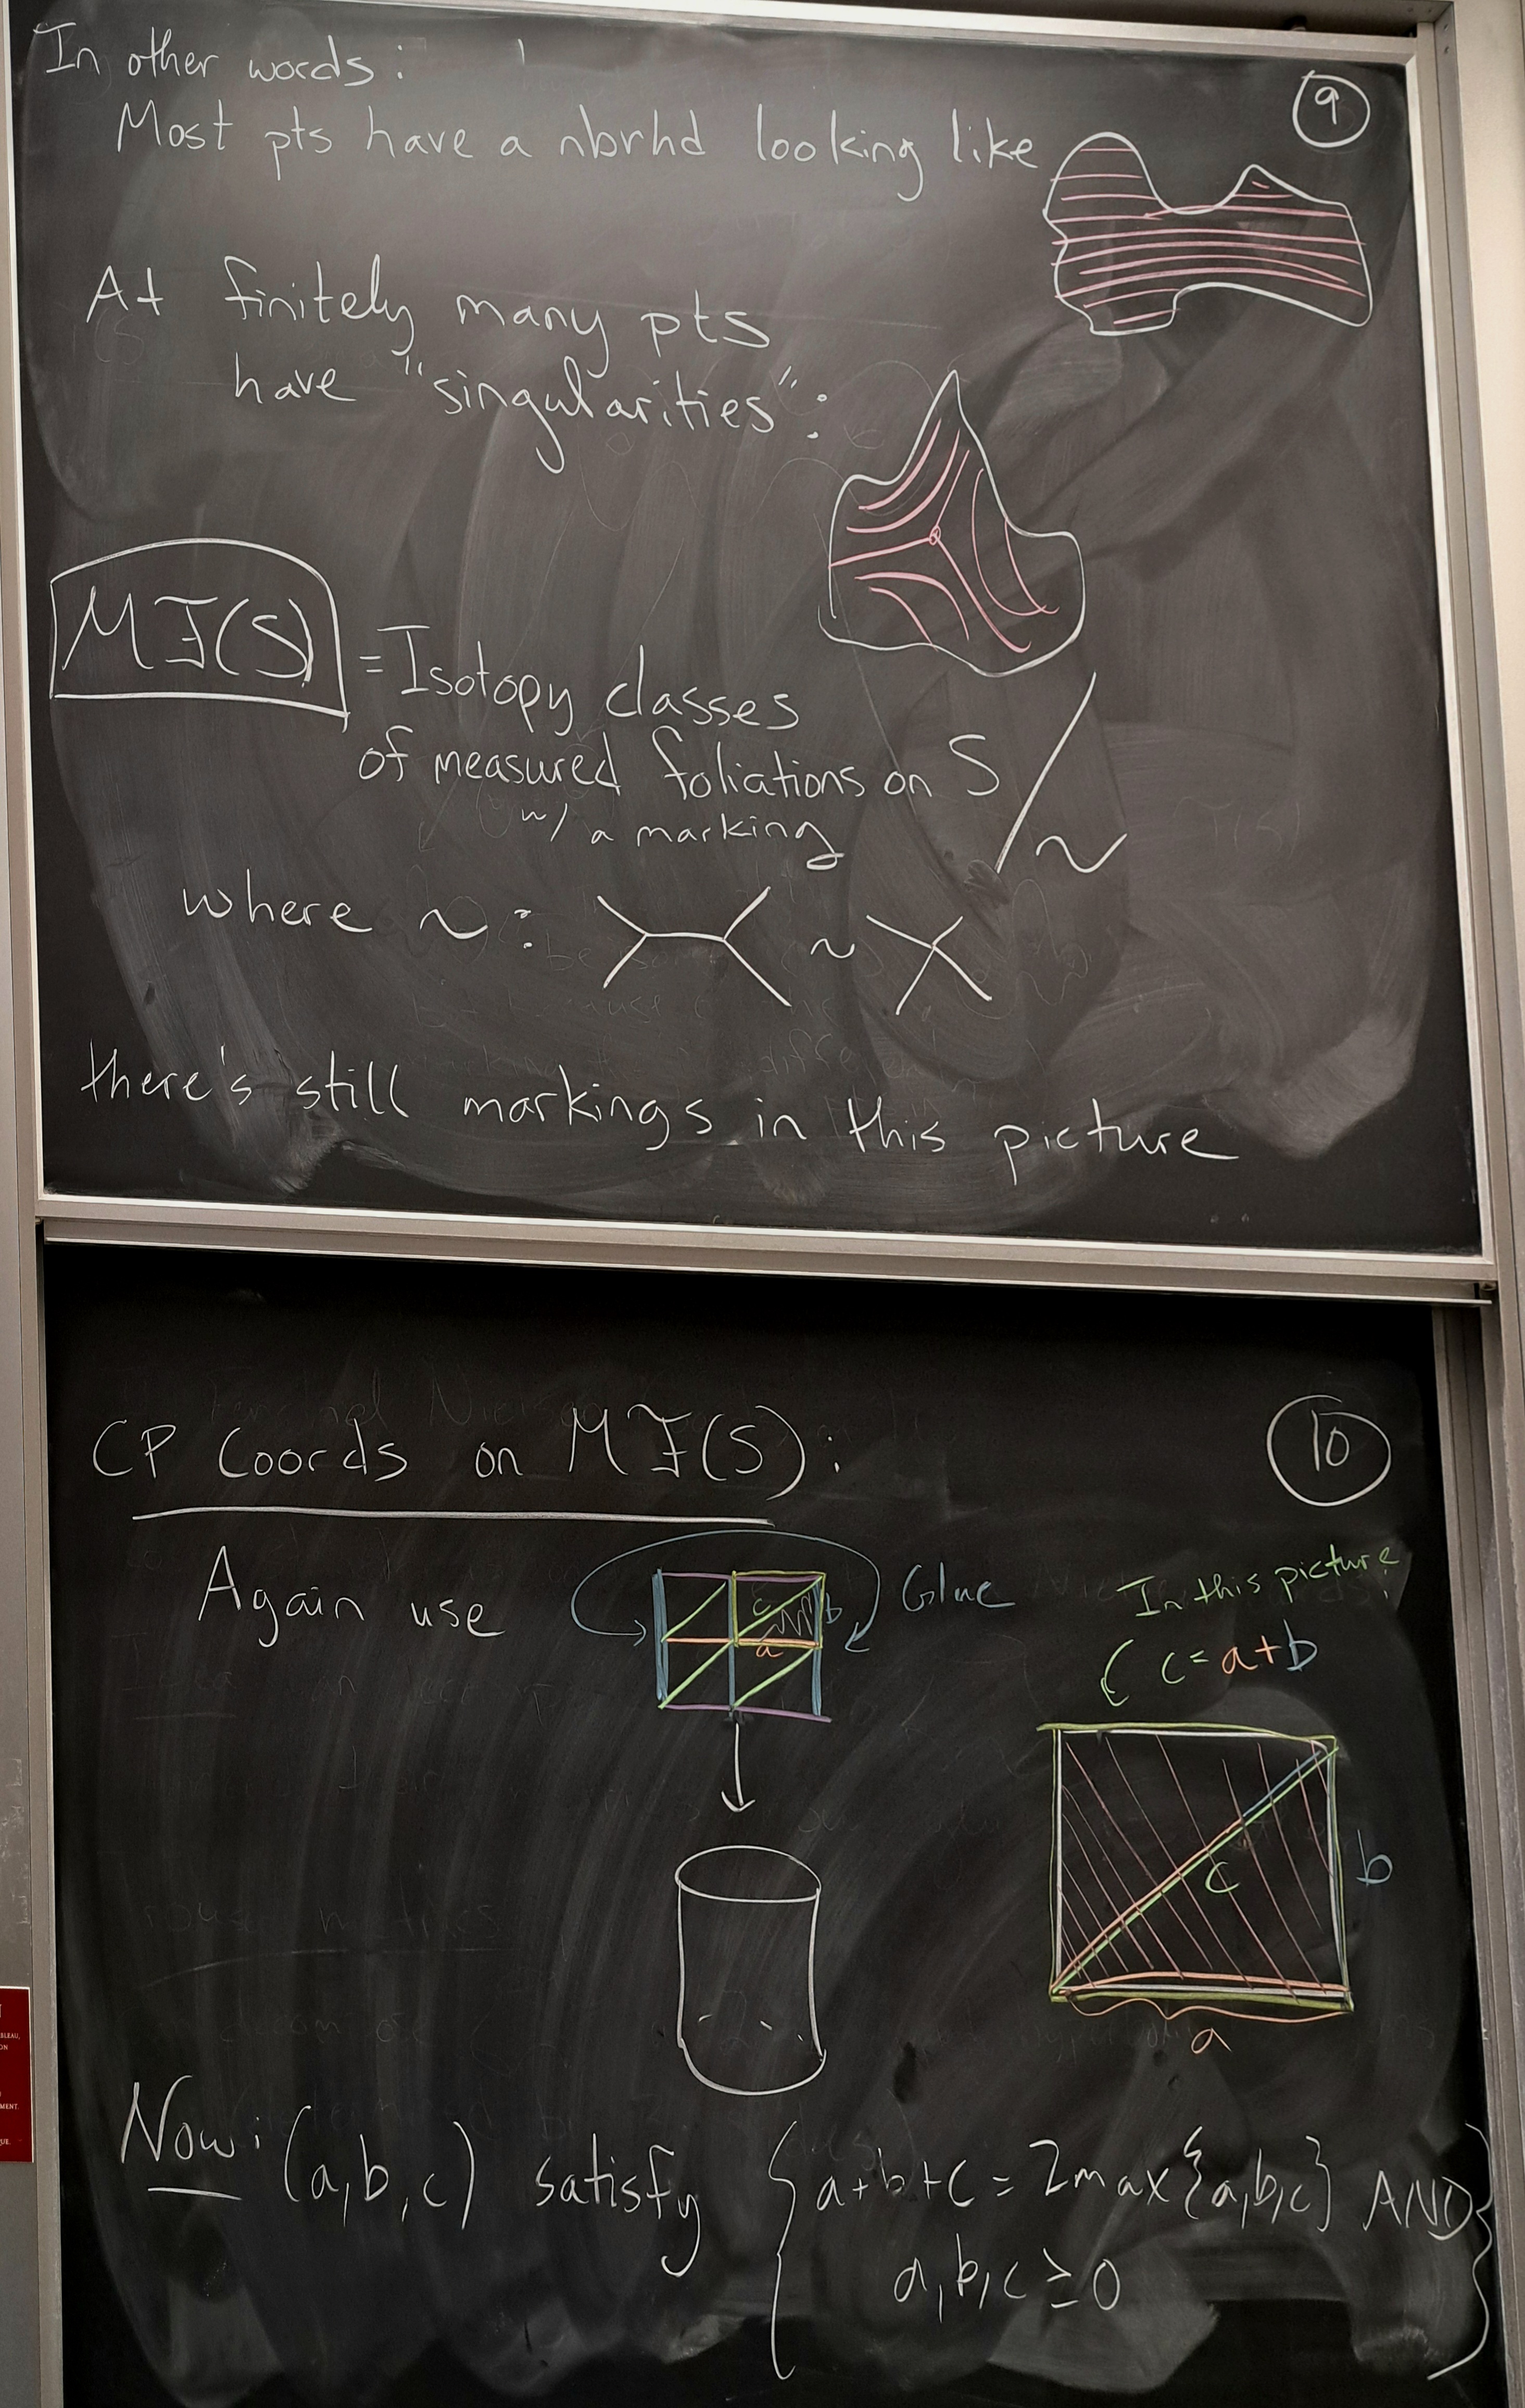 In other words:
9
Most pts have a nbrhd looking like
At finitely many pts
have "singularities":
MF(S) = Isotopy classes
of measured foliations on S / ~
w/ a marking
where ~ : ~
there's still markings in this picture
CP Coords on MF(S):
10
Again use
c
b
a
Glue
In this picture:
c = a+b
c
b
a
Now: (a,b,c) satisfy { a+b+c = 2max{a,b,c} AND
a,b,c ≥ 0 }